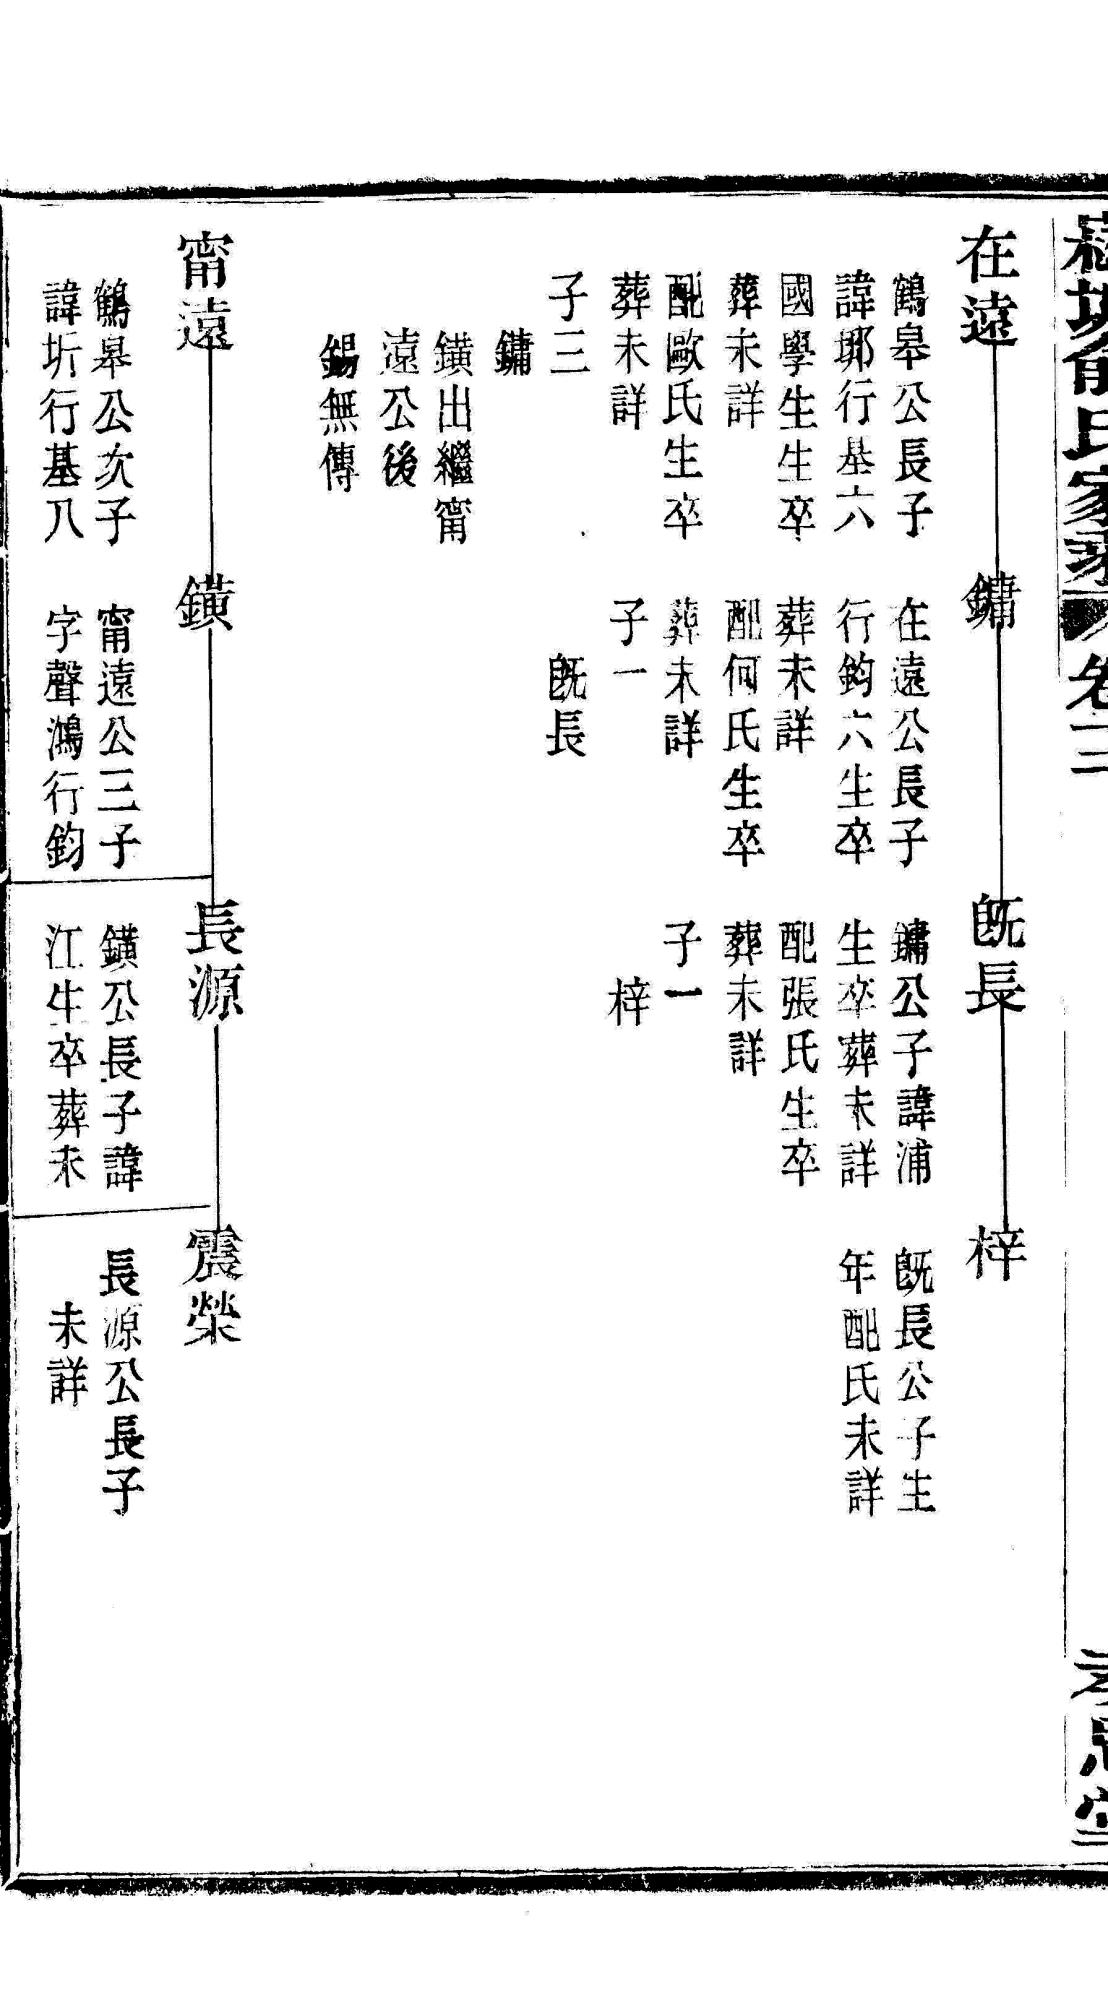 俞氏家乘
卷三
在遠
鶴皋公長子
諱墎行基六
國學生生卒
葬未詳
配歐氏生卒
葬未詳
子三
鏞
鐄出繼甯
遠公後
錫無傳
鏞
在遠公長子
行鈞六生卒
葬未詳
配何氏生卒
葬未詳
子一
旣長
旣長
鏞公子諱浦
生卒葬未詳
配張氏生卒
葬未詳
子一
梓
梓
旣長公子生
年配氏未詳
甯遠
鶴皋公次子
諱圻行基八
鐄
甯遠公三子
字聲鴻行鈞
長源
鐄公長子諱
江生卒葬未
震榮
長源公長子
未詳